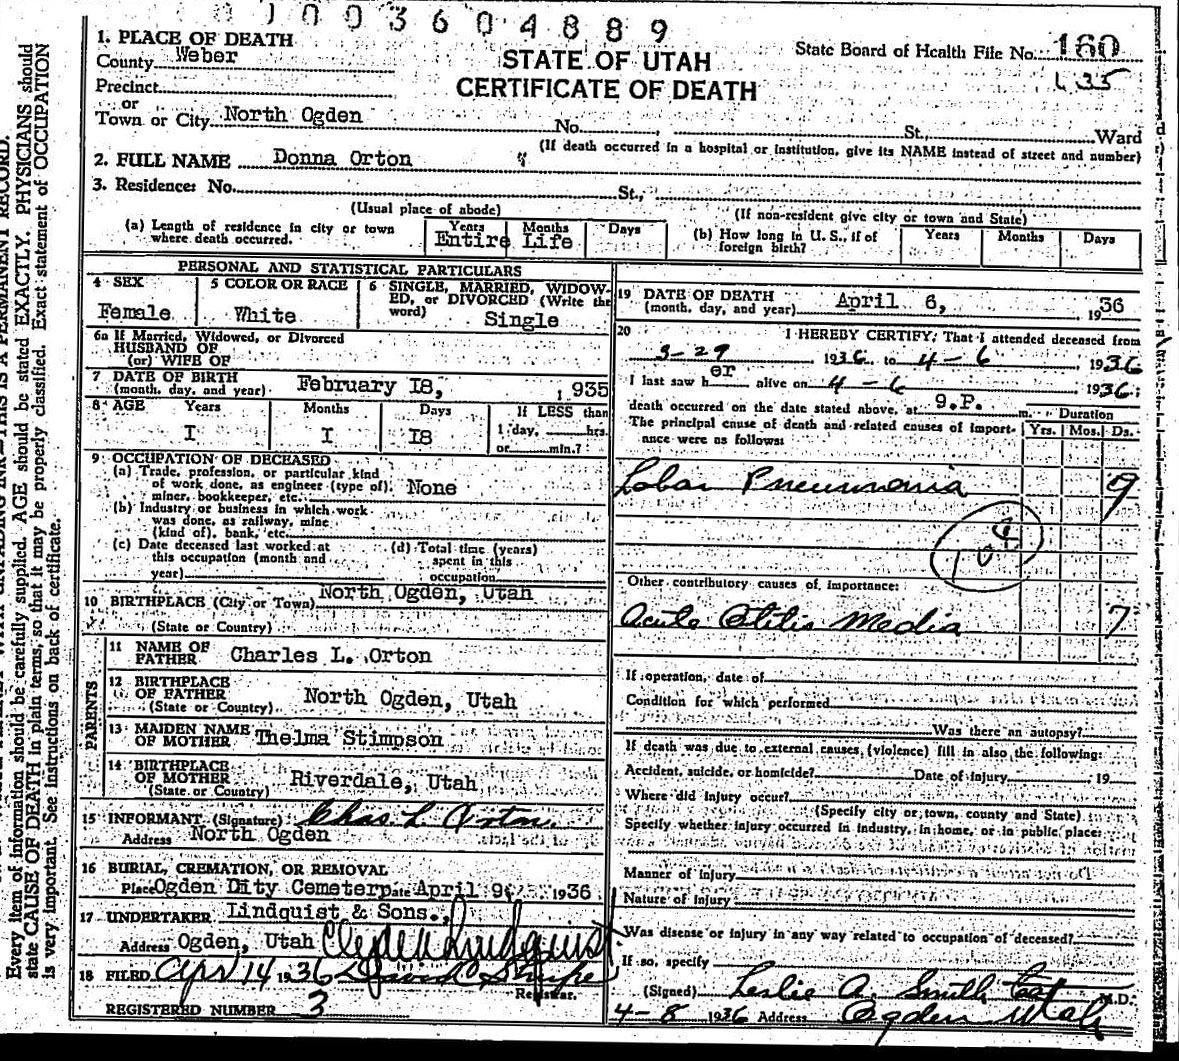 0 1 0 0 3 6 0 4 8 8 9
Every item of information should be carefully supplied. AGE should be stated EXACTLY. PHYSICIANS should
state CAUSE OF DEATH in plain terms, so that it may be properly classified. Exact statement of OCCUPATION
is very important. See instructions on back of certificate.
1. PLACE OF DEATH
County Weber
Precinct
or
Town or City North Ogden
STATE OF UTAH
CERTIFICATE OF DEATH
State Board of Health File No. 160
No. , St., Ward
(If death occurred in a hospital or institution, give its NAME instead of street and number)
2. FULL NAME Donna Orton
3. Residence: No. St.,
(Usual place of abode) (If non-resident give city or town and State)
(a) Length of residence in city or town where death occurred. Years Months Days
Entire Life
(b) How long in U. S., if of foreign birth? Years Months Days
PERSONAL AND STATISTICAL PARTICULARS
4 SEX
Female
5 COLOR OR RACE
White
6 SINGLE, MARRIED, WIDOW-
ED, or DIVORCED (Write the
word) Single
6a If Married, Widowed, or Divorced
HUSBAND OF
(or) WIFE OF
7 DATE OF BIRTH
(month, day, and year) February I8, 1935
8 AGE Years Months Days If LESS than
I I I8 1 day, hrs.
or min.?
9 OCCUPATION OF DECEASED
(a) Trade, profession, or particular kind
of work done, as engineer (type of), None
miner, bookkeeper, etc.
(b) Industry or business in which work
was done, as railway, mine
(kind of), bank, etc.
(c) Date deceased last worked at
this occupation (month and
year)
(d) Total time (years)
spent in this
occupation
10 BIRTHPLACE (City or Town) North Ogden, Utah
(State or Country)
PARENTS
11 NAME OF
FATHER Charles L. Orton
12 BIRTHPLACE
OF FATHER North Ogden, Utah
(State or Country)
13 MAIDEN NAME
OF MOTHER Thelma Stimpson
14 BIRTHPLACE
OF MOTHER Riverdale, Utah
(State or Country)
15 INFORMANT (Signature) Chas L Orton.
Address North Ogden
16 BURIAL, CREMATION, OR REMOVAL
Place Ogden Dity Cemetery Date April 9, 1936
17 UNDERTAKER Lindquist & Sons.,
Address Ogden, Utah Clyde Lindquist
18 FILED Apr 14 1936
Registrar.
REGISTERED NUMBER 3
19 DATE OF DEATH
(month, day, and year) April 6, 1936
20 I HEREBY CERTIFY: That I attended deceased from
3-29 1936 to 4-6 1936
I last saw her alive on 4-6 1936;
death occurred on the date stated above, at 9.P. m. Duration
The principal cause of death and related causes of import-
ance were as follows: Yrs. Mos. Ds.
Lobar Pneumonia 9
Other contributory causes of importance:
Acute Otitis Media 7
If operation, date of
Condition for which performed
Was there an autopsy?
If death was due to external causes (violence) fill in also the following:
Accident, suicide, or homicide? Date of injury 19
Where did injury occur?
(Specify city or town, county and State)
Specify whether injury occurred in industry, in home, or in public place:
Manner of Injury
Nature of Injury
Was disease or injury in any way related to occupation of deceased?
If so, specify
(Signed) Leslie A. Smith M.D.
4-8 1936 Address Ogden Utah